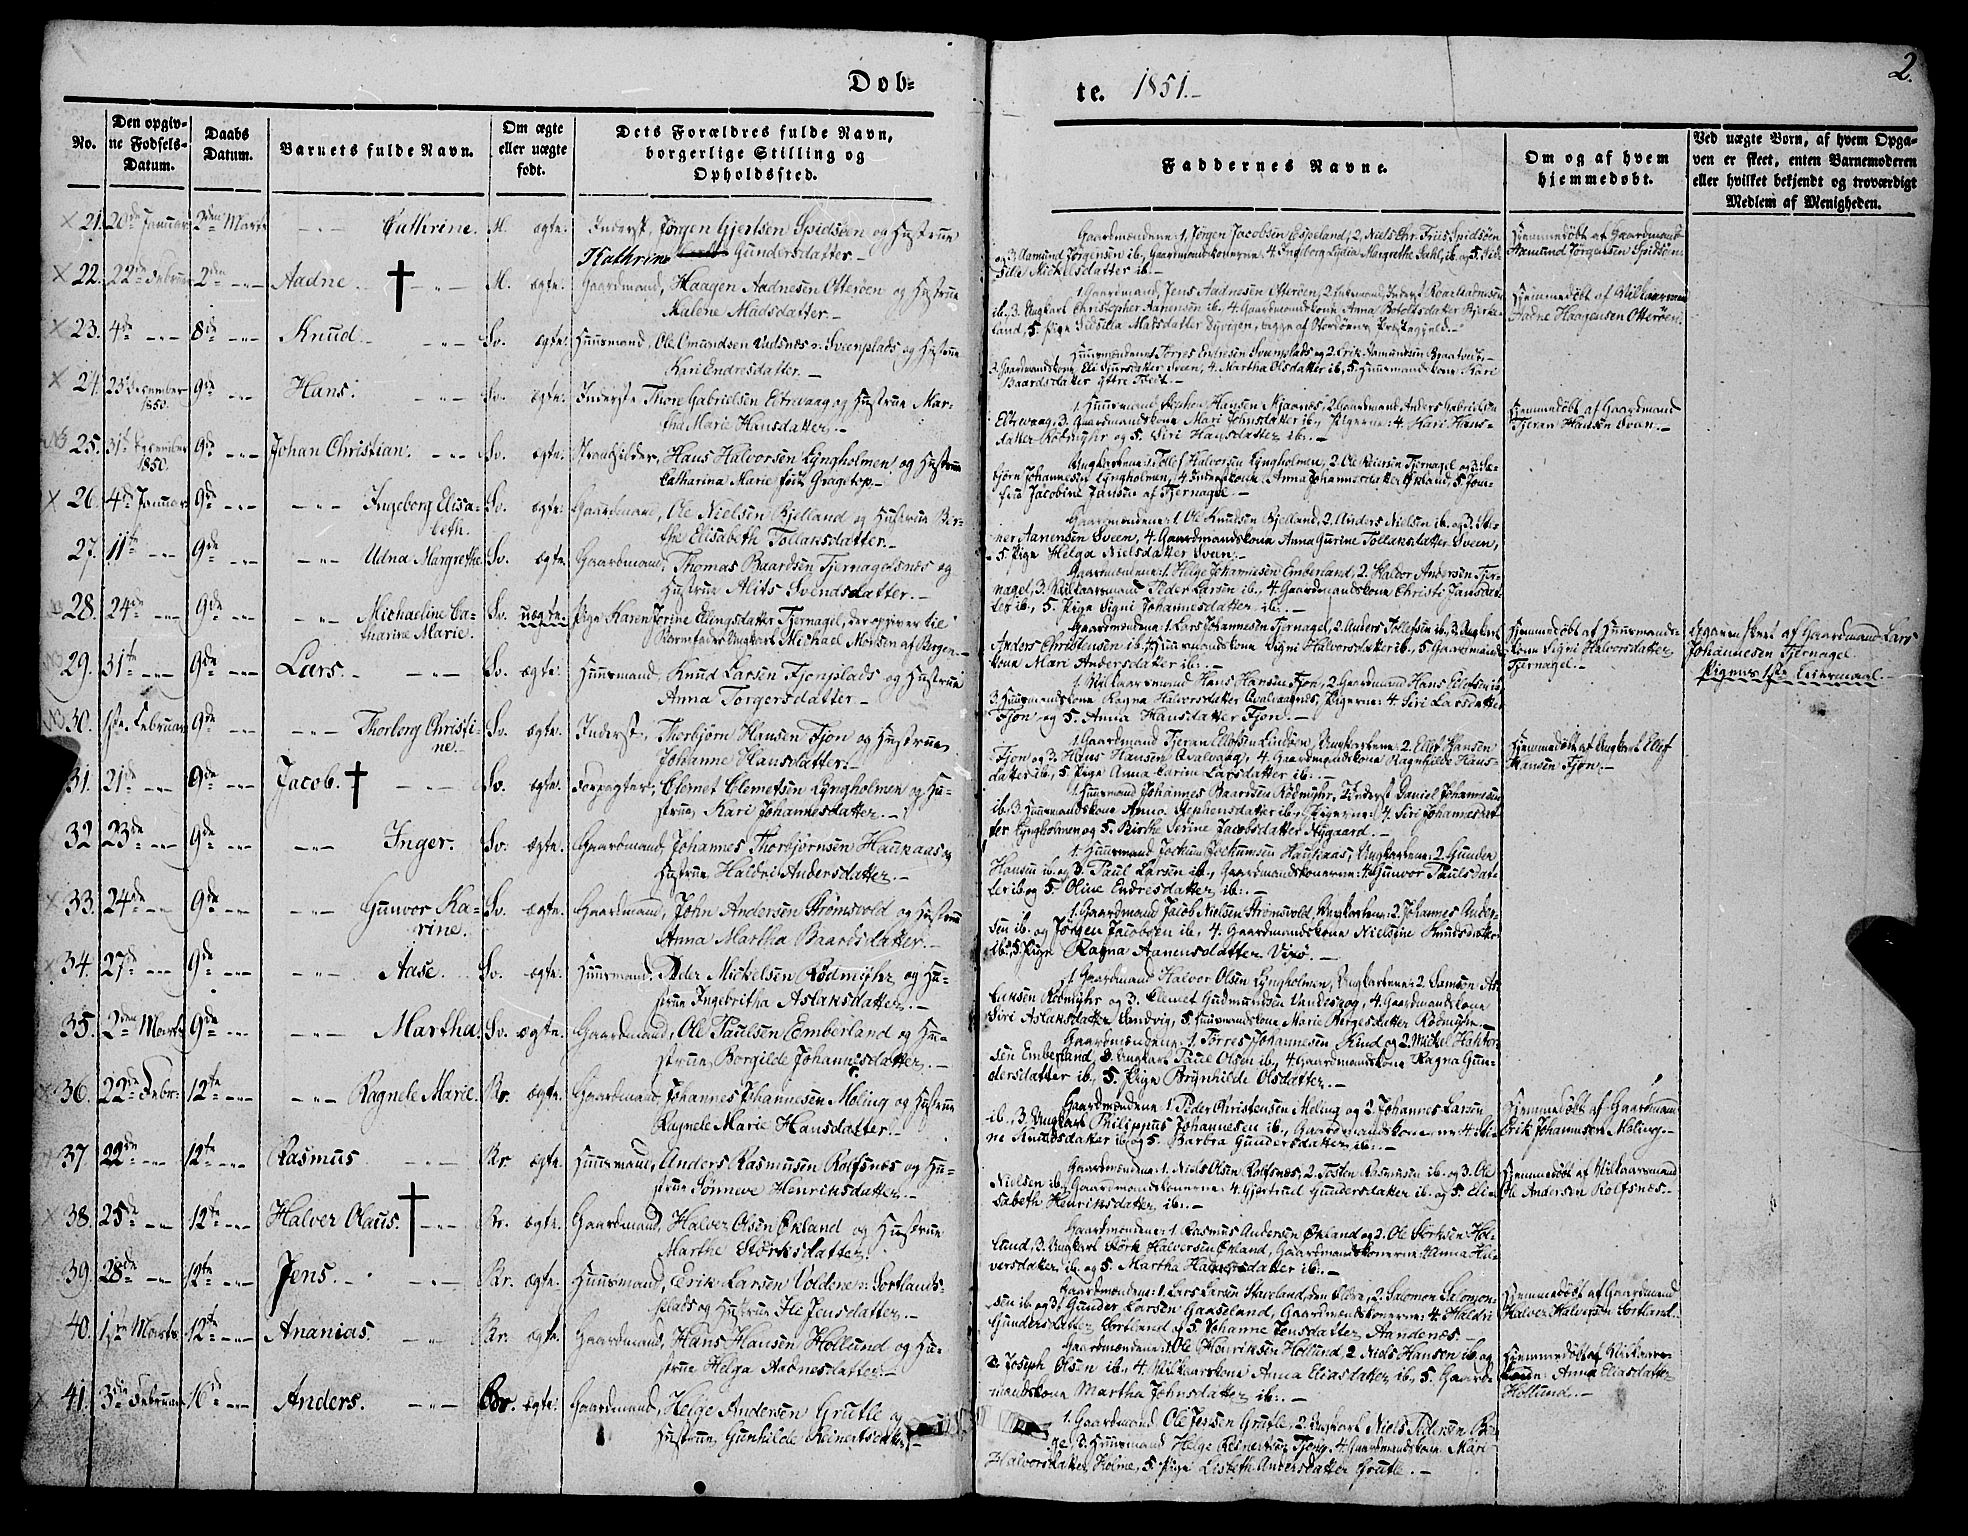 Døb-
te. 1851.-
2.
No.
Den opgiv-
ne Fødsels-
Datum.
Daabs
Datum.
Barnets fulde Navn.
Om ægte
eller uægte
født.
Dets Forældres fulde Navn,
borgerlige Stilling og
Opholdssted.
Faddernes Navne.
Om og af hvem
hjemmedøbt.
Ved uægte Børn, af hvem Opga-
ven er skeet, enten Barnemoderen
eller hvilket bekjendt og troværdigt
Medlem af Menigheden.
21. 20de Januar 2den Marts Cathrine. M. ægte. Inderst, Jørgen Gjertsen Spidsøen og Hustrue
Kathrine Gundersdatter.-
Gaardmændene: 1, Jørgen Jacobsen Espeland, 2, Niels Chr. Friis Spidsøen
og 3, Aamund Jørgensen ib., Gaardmandskonerne 4. Ingeborg Lydia Margrethe Dahl, ib. og 5.
Mickelsdatter ib.-
Hjemmedøbt af Gaardmand
Aamund Jørgensen Spidsøen.
22. 22de Februar 2den Aadne. † M. ægte. Gaardmand, Haagen Aadnesen Otterøen og Hustrue
Malene Madsdatter.-
1. Gaardmand, Jens Aadnesen Otterøen,
ib., 3. Ungkarl Christopher Aanensen ib. 4. Gaardmandskone Anna
land, 5. Pige Madsdatter
Hjemmedøbt af Vilkaarsmand
Aadne Haagensen Otterøen.
23. 4de 8de Knud. Sv. ægte. Huusmand, Ole Omundsen Vadsnæs v. Sveenplads og Hustrue
Kari Endresdatter.-
Huusmændene 1 Torres Endresen Sveenplads og 2. Erik Aamundsen
3. Gaardmandskone, Eli Sjursdatter Sveen, 4. Martha Olsdatter ib, 5. Huusmandskone Kari
Baardsdatter yttre
24. 25 December 1850. 9de Hans. Sv. ægte. Inderste Thore Gabrielsen Eltrevaag og Hustrue Mar-
tha Marie Hansdatter.-
1. Huusmand, Hansen 2. Gaardmand, Anders Gabrielsen
Eltrevaag, 3. Gaardmandskone Mari Johnsdatter ib., Pigerne: 4. Kari Hans-
datter Rødmyhr og 5. Siri Hansdatter ib.-
Hjemmedøbt af Gaardmand
Tjeran Hansen
25. 31te December 1850. 9de Johan Christian. Sv. ægte. Strandsidder, Hans Halvorsen Lyngholmen og Hustrue
Catharina Marie født Gragtop.-
Ungkarlene: 1. Tollef Halvorsen Lyngholmen, 2. Ole Reiersen Tjernagel og 3.
bjørn Johannesen Lyngholmen, 4. Inderstkone Anna Johannesdatter Økland, 5. Jom-
frue Jacobine Jansen af Tjernagel.-
26. 4de Januar 9de Ingeborg Elisa-
beth. Sv. ægte. Gaardmand, Ole Nielsen Bjelland og Hustrue Ber-
the Elisabeth Tollaksdatter.-
Gaardmændene: 1. Ole Knudsen Bjelland, 2. Anders Nielsen ib. og 3.
Aanensen Sveen, 4. Gaardmandskone Anna Gurine Tollaksdatter Sveen,
5. Pige Helga Nielsdatter Sveen.-
27. 11te 9de Udna Margrethe. Sv. ægte. Gaardmand, Thomas Baardsen Tjernagelsnæs og
Hustrue Alits Svendsdatter.-
Gaardmændene: 1. Helge Johannesen Emberland, 2. Haldor Andersen Tjer-
nagel, 3. Vilkaarsmand Peder Larsen ib., 4. Gaardmandskone Christi Jansdat-
ter ib., 5. Pige Signi Johannesdatter ib.-
28. 24de 9de Michaeline Ca-
tharine Marie. Sv. uægte. Pige Karen Jorine Ellingsdatter Tjernagel, der opgiver til
Barnefader Ungkarl Michael Monsen af Bergen.-
Gaardmændene 1. Lars Johannesen Tjernagel, 2. Anders Tollefsen ib. 3. Ungkarl
Anders Christensen ib. 4. Huusmandskone Signi Halvorsdatter ib., 5. Gaardmands-
kone Mari Andersdatter ib.-
Hjemmedøbt af Huusmands-
kone Signi Halvorsdatter
Tjernagel.-
Opgaven skeet af Gaardmand Lars
Johannesen Tjernagel.
Pigens 1ste Leiermaal.-
29. 31te 9de Lars. Sv. ægte. Huusmand, Knud Larsen Fjonplads og Hustrue
Anna Torgersdatter.-
1. Vilkaarsmand Hans Hansen Fjon, 2. Gaardmand Hans Ellefsen ib.
3. Huusmandskone Ragna Halvorsdatter Pigerne: 4. Siri Larsdatter
Fjon og 5. Anna Hansdatter Fjon.-
30. 1ste Februar 9de Thorborg Christi-
ne. Sv. ægte. Inderst, Thorbjørn Hansen Fjon og Hustrue
Johanne Hansdatter.-
1. Gaardmand Tjeran Ellefsen Lindøen, Ungkarlene: 2. Ellef Hansen
Fjon og 3. Hans Hansen Qvalvaag, 4. Gaardmandskone Ragnhilde Hans-
datter ib., 5. Pige Anna Carine Larsdatter ib.-
Hjemmedøbt af Ungkarl Ellef
Hansen Fjon.-
31. 21de 9de Jacob. † Sv. ægte. Forpagter, Clemet Clemetsen Lyngholmen og Hu-
strue Kari Johannesdatter.-
1. Huusmand Johannes Baardsen Rødmyhr, 2. Inderst Daniel Johannesen
ib. 3. Huusmandskone Anna Stephensdatter ib., Pigerne: 4. Siri Johannesdat-
ter Lyngholmen og 5. Birthe Serine Jacobsdatter Nygaard.-
32 23de 9de Inger. Sv. ægte. Gaardmand, Johannes Thorbjørnsen Haukaas og
Hustrue Haldri Andersdatter.-
1. Huusmand Jockum Jockumsen Haukaas, Ungkarlene: 2. Gunder
Hansen ib. og 3. Paul Larsen ib., Gaardmandskonerne: 4. Gunvor Paulsdat-
ter ib. og 5. Oline Endresdatter ib.-
33. 24de 9de Gunvor Ka-
rine. Sv. ægte. Gaardmand, John Andersen Strømsvold og Hustrue
Anna Martha Baardsdatter.-
1. Gaardmand Jacob Nielsen Strømsvold, Ungkarlene: 2. Johannes Ander-
sen ib. og Jørgen Jacobsen ib., 4. Gaardmandskone Nielsine Knudsdatter
ib., 5. Pige Ragna Aanensdatter Vixø.-
34. 27de 9de Aase. Sv. ægte. Huusmand, Peder Mickelsen Rødmyhr og Hu-
strue Ingebritha Aslaksdatter.-
1. Gaardmand Halvor Olsen Lyngholmen, Ungkarlene: 2. Samson
Rødmyhr og 3. Clemet Gudmundsen Vandeskog, 4. Gaardmandskone
Siri Aslaksdatter Sandvig, 5. Huusmandskone Marie Børgesdatter Rødmyhr.-
35. 2den Marts 9de Martha. Sv. ægte. Gaardmand, Ole Paulsen Emberland og Hu-
strue Borgilde Johannesdatter.-
Gaardmændene: 1. Torres Johannesen Kind og 2. Mickel
sen Emberland, 3. Ungkarl Paul Olsen ib., 4. Gaardmandskone Ragna Gun-
dersdatter ib., 5. Pige Brynhilde Olsdatter.-
36. 22de Febr. 12te Ragnele Marie. Br. ægte. Gaardmand Johannes Johannesen Møling og Hustrue
Ragnele Marie Hansdatter.-
Gaardmændene 1 Peder Christensen Meling og 2. Johannes Larsen
ib., 3. Ungkarl Philippus Johannesen ib., Gaardmandskonerne: 4.
Andersdatter ib. og 5. Barbra Gundersdatter, ib.-
Hjemmedøbt af Gaardmand
Erik Johannesen Meling.-
37. 22de 12te Rasmus Br. ægte. Huusmand, Anders Rasmusen Rolfsnæs og Hu-
strue Sønneve Henriksdatter.-
Gaardmændene: 1. Niels Olsen Rolfsnæs, 2. Tosten Rasmusen ib. og 3. Ole
Nielsen ib., Gaardmandskonerne: 4. Gjertrud Gundersdatter ib. og 5. Eli-
sabeth Henriksdatter ib.-
Hjemmedøbt af Vilkaarsmand
Ole Andersen Rolfsnæs.-
38. 25de 12te Halver Olaus. † Br. ægte. Gaardmand, Halver Olsen Økland og Hustrue
Marthe Størksdatter.
Gaardmændene: 1 Rasmus Andersen Økland og 2. Ole Størksen Hol-
lund, 3. Ungkarl Størk Halversen Økland, Gaardmandskonerne: 4. Anna Hal-
versdatter ib. og 5. Martha Halversdatter ib.-
39. 28de 12te Jens. Br. ægte. Huusmand, Erik Larsen Voldene v. Sortlands-
plads og Hustrue Ile Jensdatter.-
Gaardmændene: 1. Lars Larsen Staveland, den Eldre, 2. Salomon Salomon-
sen ib. og 3. Gunder Larsen Gaaseland, Gaardmandskonerne: 4. Haldri
Gundersdatter Sortland og 5. Johanne Jensdatter Aandenæs.-
Hjemmedøbt af Gaardmand
Halver Halversen Sortland.
40. 1ste Marts 12te Ananias. Br. ægte. Gaardmand, Hans Hansen Hollund og Hu-
strue Helga Aadnesdatter.-
Gaardmændene: 1 Ole Henriksen Hollund, 2 Niels Hansen ib. og
3. Joseph Olsen ib., 4. Vilkaarskone Anna Eliasdatter ib., 5. Gaard-
mandskone Martha Johnsdatter ib.-
Hjemmedøbt af Vilkaars-
kone: Anna Eliasdatter
Hollund.-
41. 3die Februar 16de Anders. Br. ægte. Gaardmand, Helge Andersen Grutle og
Hustrue, Gunhilde Reinertsdatter.-
1. Gaardmand Ole Jensen Grutle, 2. Ungkarl Niels Pedersen
3. Huusmand Helge Reinertsen 4. Gaardmandskone Mari
Halvorsdatter Holme, 5. Pige Lisbeth Andersdatter Grutle.-